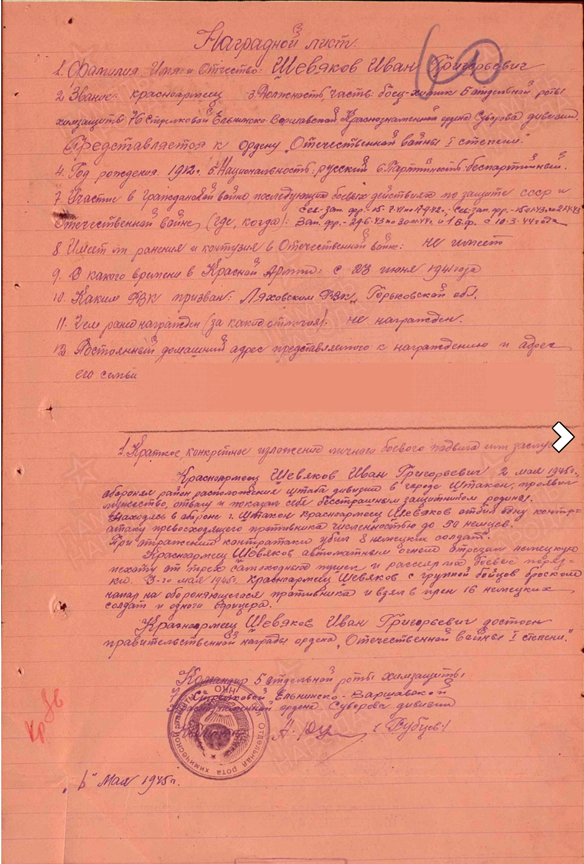 Наградной лист
1. Фамилия, Имя и Отчество: Шевяков Иван Григорьевич
2. Звание красноармеец 3. Должность, часть: боец-химик 5 отдельной роты
химзащиты 76 Стрелковой Ельнинско-Варшавской Краснознаменной ордена Суворова дивизии
Представляется к ордену "Отечественной войны I степени."
4. Год рождения 1912г. 5. Национальность русский 6. Партийность беспартийный.
7. Участие в гражданской войне последующих боевых действиях по защите СССР и
Отечественной войне (где, когда):
8. Имеет ли ранения и контузии в Отечественной войне: не имеет
9. С какого времени в Красной Армии: с 23 июня 1941 года
10. Каким РВК призван: Ляховским РВК, Горьковской обл.
11. Чем ранее награжден (за какие отличия): не награжден.
12. Постоянный домашний адрес представляемого к награждению и адрес
его семьи
1. Краткое конкретное изложение личного боевого подвига или заслуг
Красноармеец Шевяков Иван Григорьевич 2 мая 1945г.
обороняя район расположения штаба дивизии в городе проявил
мужество, отвагу и показал себя бесстрашным защитником родины.
Находясь в обороне г. красноармеец Шевяков отбил одну контр-
атаку превосходящего противника численностью до 90 немцев.
При отражении контратаки убил 8 немецких солдат.
Красноармеец Шевяков автоматным огнем отрезал немецкую
пехоту от трех самоходного пушек и рассеял их боевые поряд-
ки. 3-го мая 1945г. красноармеец Шевяков с группой бойцов броском
напал на обороняющегося противника и взял в плен 16 немецких
солдат и одного офицера.
Красноармеец Шевяков Иван Григорьевич достоин
правительственной награды ордена "Отечественной войны I степени."
Командир 5 отдельной роты химзащиты
Стрелковой Ельнинско-Варшавской
Краснознаменной ордена Суворова дивизии
НКО
Отдельная рота химической
Мая 1945г.